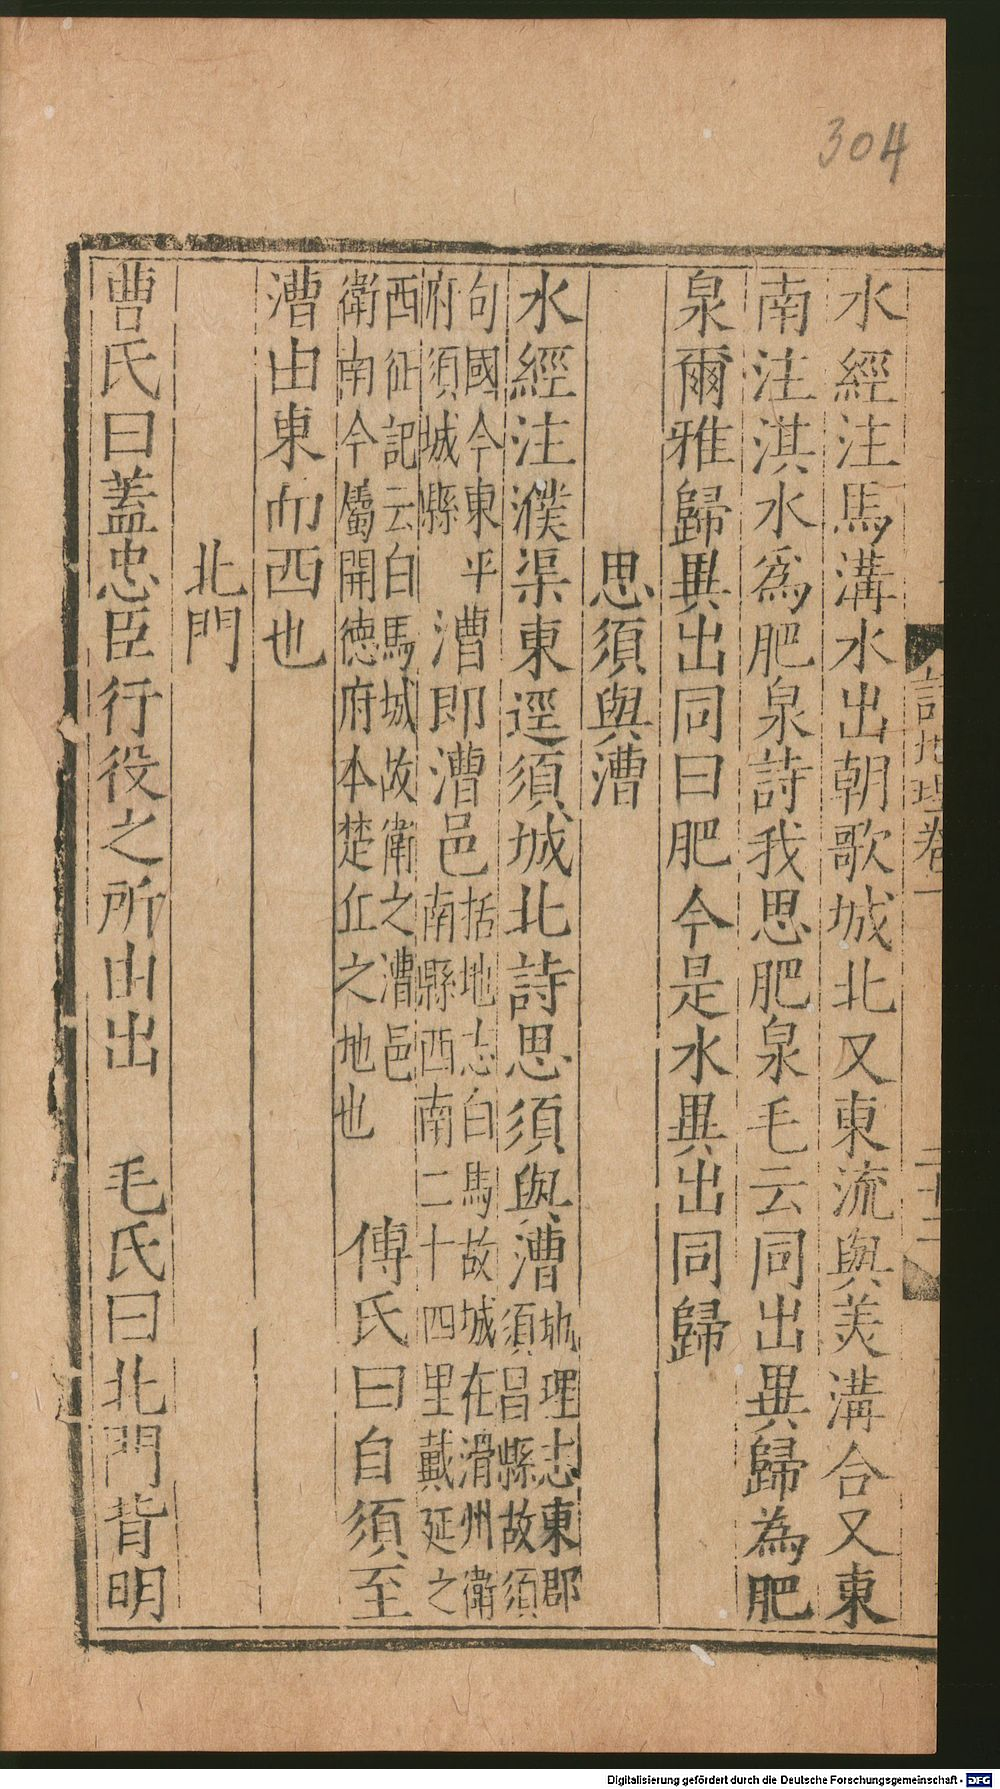 304
詩地理卷一
二十二
水經注馬溝水出朝歌城北又東流與美溝合又東
南注淇水爲肥泉詩我思肥泉毛云同出異歸為肥
泉爾雅歸異出同曰肥今是水異出同歸
思須與漕
水經注濮渠東逕須城北詩思須與漕地理志東郡須昌縣故須
句國今東平府須城縣漕即漕邑括地志白馬故城在滑州衛南縣西南二十四里戴延之
西征記云白馬城故衛之漕邑衛南今屬開德府本楚丘之地也 傅氏曰自須至
漕由東而西也
北門
曹氏曰蓋忠臣行役之所由出 毛氏曰北門背明
Digitalisierung gefördert durch die Deutsche Forschungsgemeinschaft - DFG